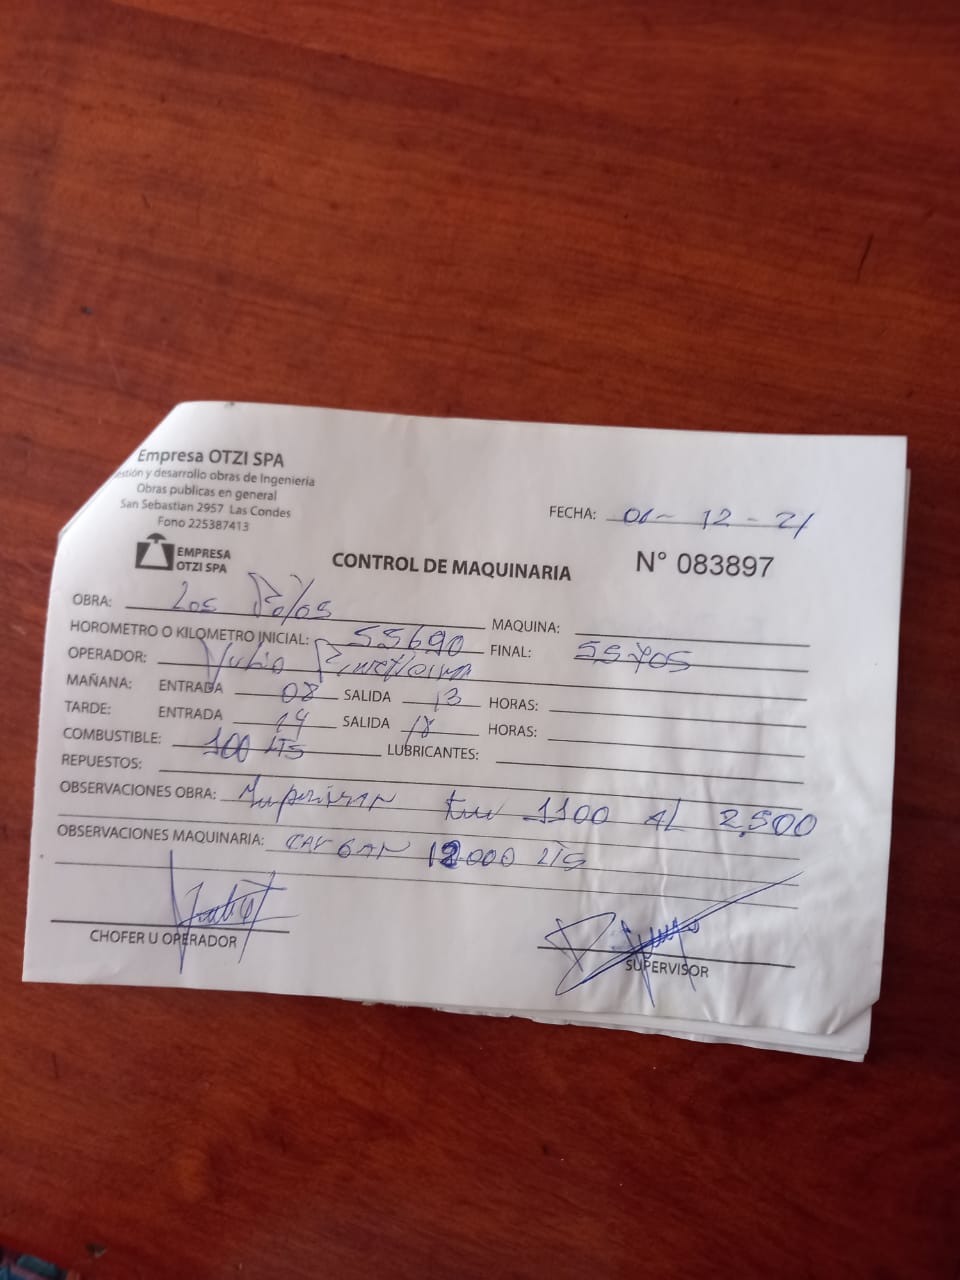 Empresa OTZI SPA
estión y desarrollo obras de Ingeniería
Obras publicas en general
San Sebastian 2957 Las Condes
Fono 225387413
EMPRESA
OTZI SPA
FECHA: 01-12-21
CONTROL DE MAQUINARIA
N° 083897
OBRA: Los
MAQUINA:
HOROMETRO O KILOMETRO INICIAL: 55690 FINAL: 55705
OPERADOR:
MAÑANA: ENTRADA 08 SALIDA 13 HORAS:
TARDE: ENTRADA 14 SALIDA 18 HORAS:
COMBUSTIBLE: 100 LTS LUBRICANTES:
REPUESTOS:
OBSERVACIONES OBRA: 1100 AL 2,500
OBSERVACIONES MAQUINARIA: 12000 LTS
CHOFER U OPERADOR
SUPERVISOR